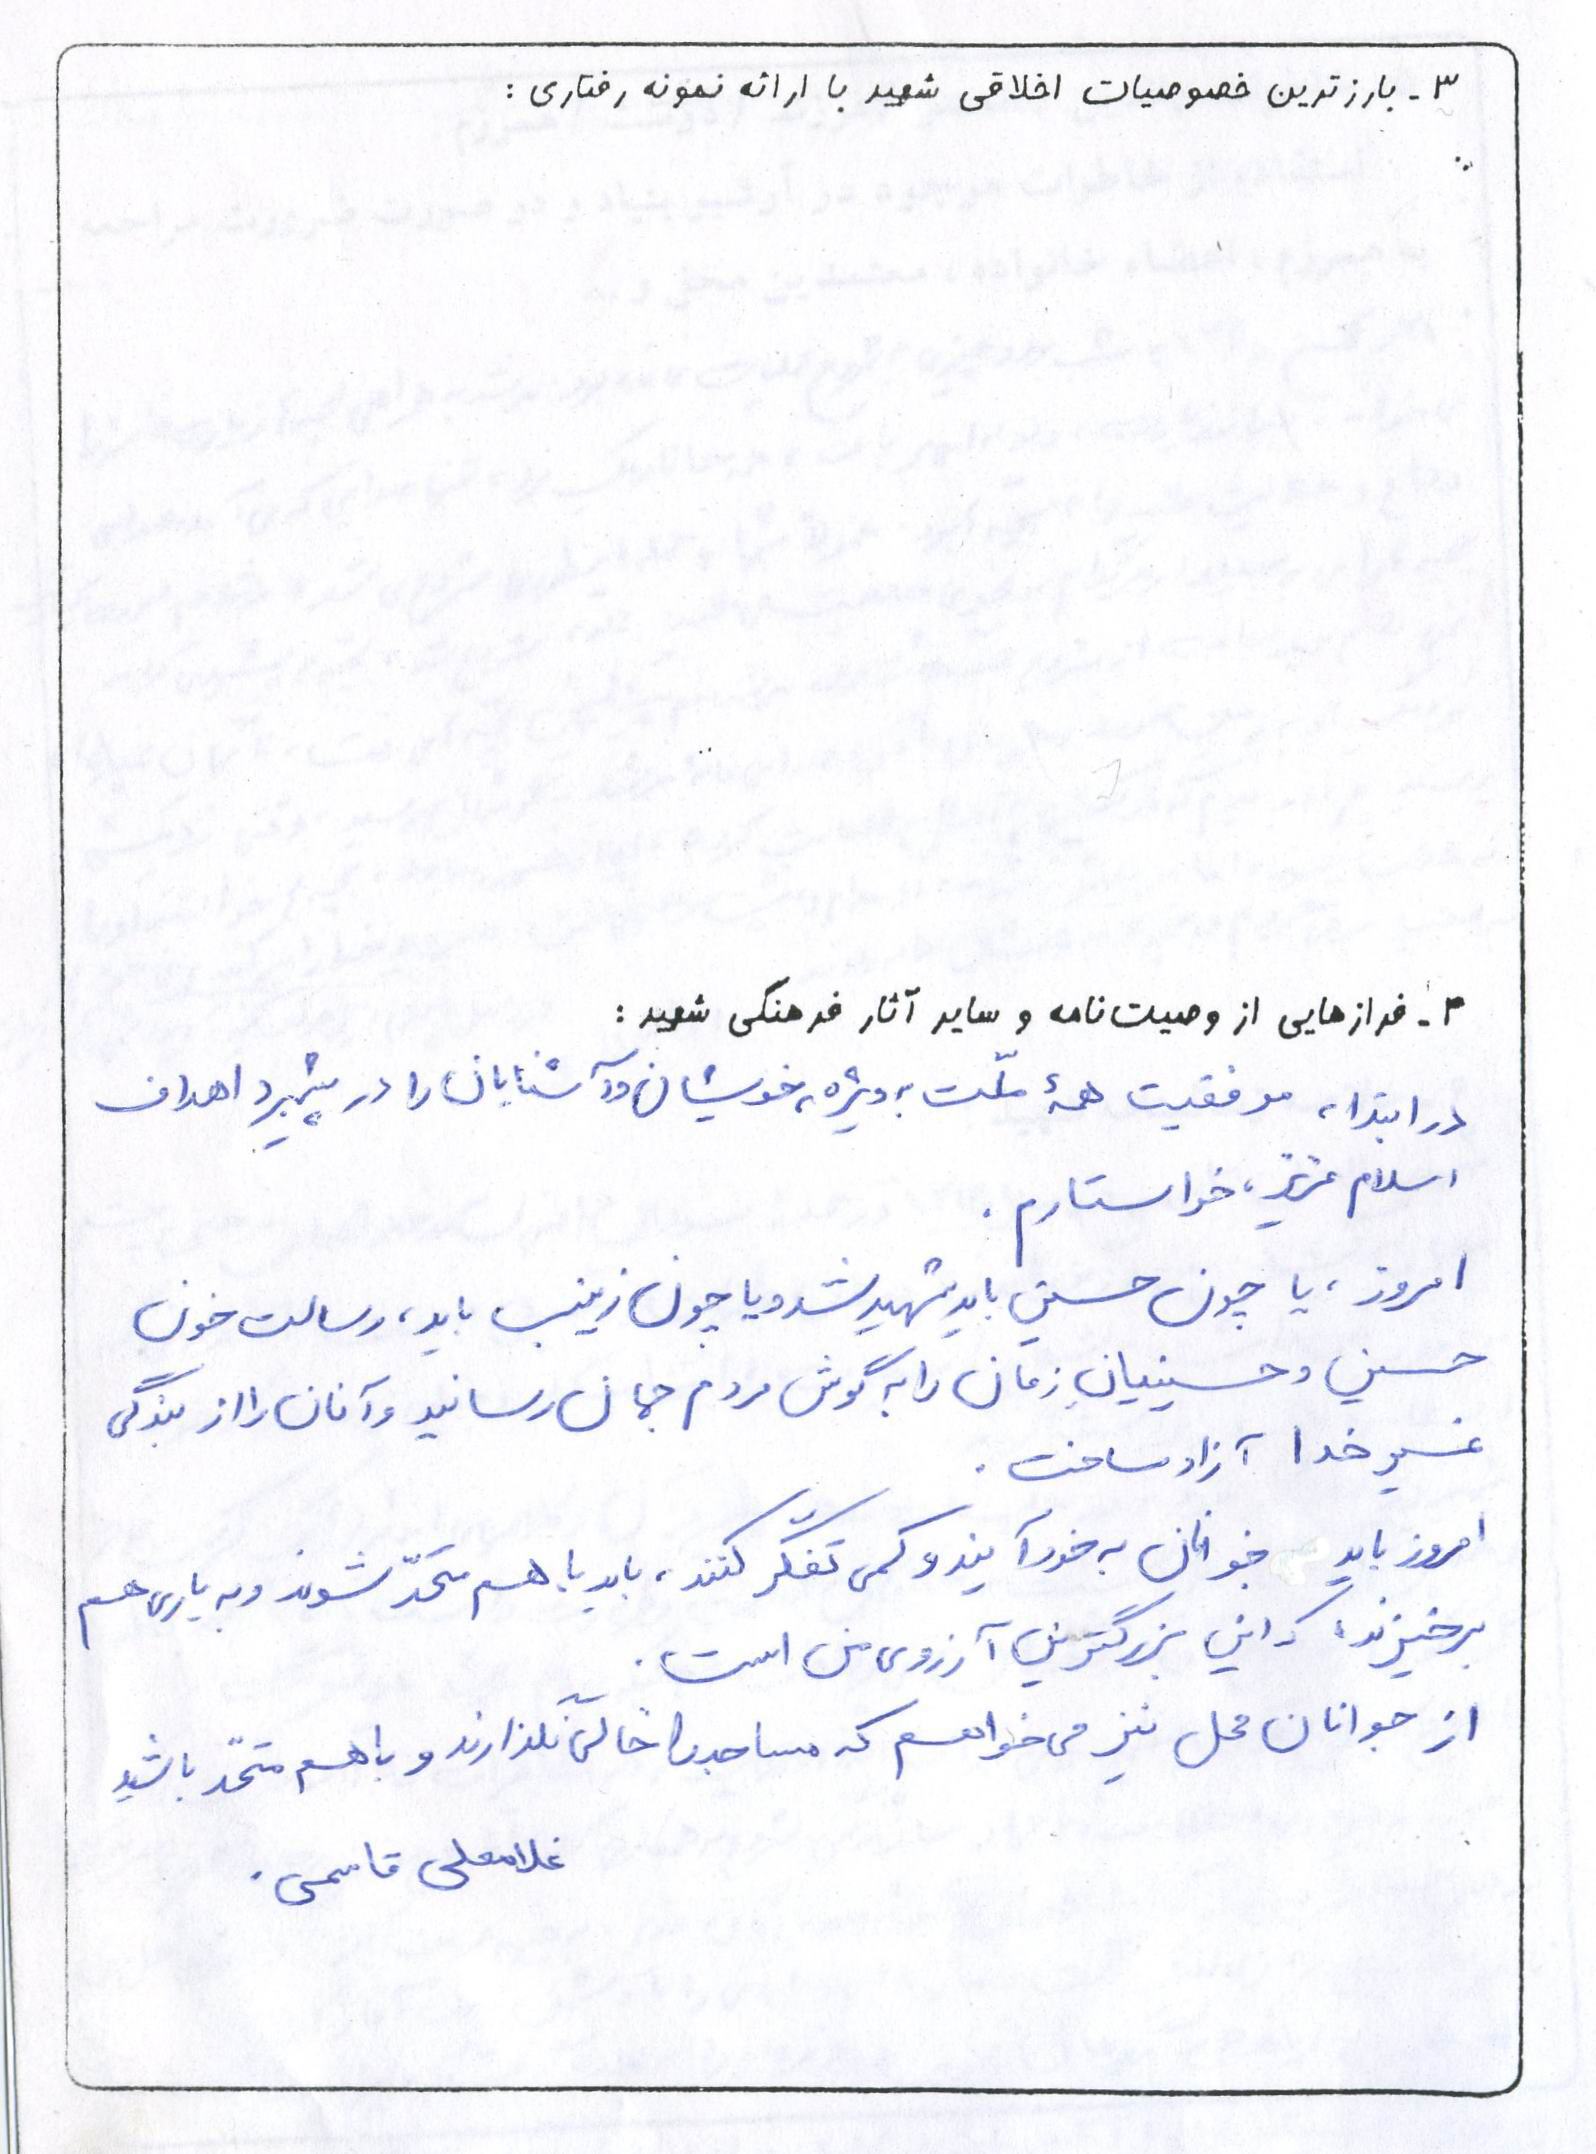 ۳- بارزترین خصوصیات اخلاقی شهید با ارائه نمونه رفتاری :
۴- فرازهایی از وصیت‌نامه و سایر آثار فرهنگی شهید :
در ابتدا، موفقیت همهٔ ملّت به ویژه، خویشان و آشنایان را در پیشبرد اهداف
اسلام عزیز، خواستارم .
امروز، یا چون حسین باید شهید شد و یا چون زینب باید، رسالت خون
حسین و حسینیان زمان را به گوش مردم جهان رسانید و آنان را از بندگی
غیر خدا آزاد ساخت .
امروز باید جوانان به خود آیند و کمی تفکّر کنند، باید با هم متحدّ شوند و به یاری هم
برخیزند، که این بزرگترین آرزوی من است .
از جوانان محل نیز می‌خواهم که مساجد را خالی نگذارند و با هم متحدّ باشید
غلامعلی قاسمی .